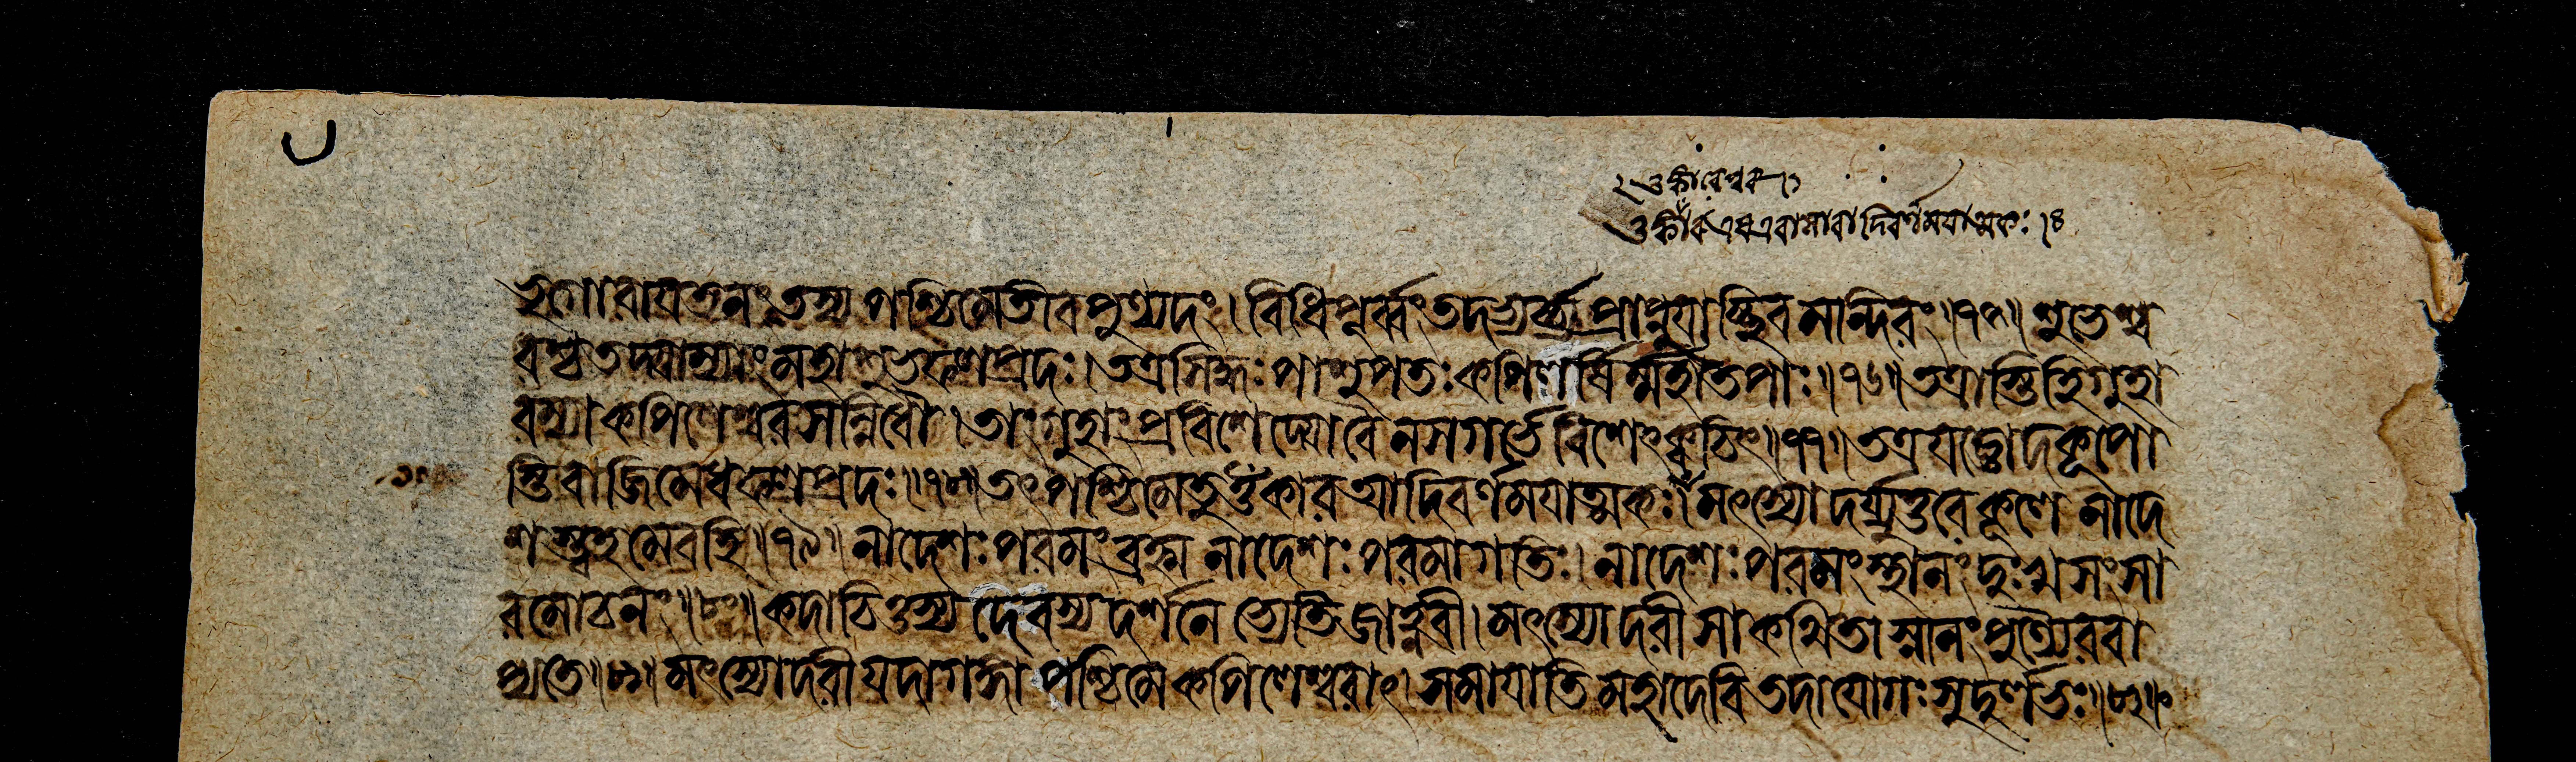 ওঙ্কারেশ্বর
ওঙ্কার এষ এবাসাবাদিবর্ণময়াত্মকঃ ৪
তস্য পশ্চিমেতীবপুণ্যদং। বিধিপূর্ব্বং তদভ্যর্চ্য প্রাপ্নুয়াচ্ছিবমন্দিরং॥৭৫॥ শুভেশ্ব
রশ্চ তদ্যাম্যাং মহাশুভফলপ্রদঃ। তত্র সিদ্ধঃ পাশুপতঃ কপিলর্ষির্ম্মহাতপাঃ॥৭৬॥ তত্রাস্তি হি গুহা
রম্যা কপিলেশ্বরসন্নিধৌ। তাং গুহাং প্রবিশেদ্যো বৈ ন স গর্ভে বিশেৎক্বচিৎ॥৭৭॥ তত্র যজ্ঞোদকূপো
স্তি বাজিমেধফলপ্রদঃ॥৭৮॥ তৎ পশ্চিমে তু ওঁকার আদিবর্ণময়াত্মকঃ। মৎস্যোদর্য্যুত্তরে কূলে নাদে
শস্ত্বহমেব হি॥৭৯॥ নাদেশঃ পরমং ব্রহ্ম নাদেশঃ পরমা গতিঃ। নাদেশঃ পরমং স্থানং দুঃখসংসা
রমোচনং॥৮০॥ কদাচিত্তস্য দেবস্য দর্শনে ত্যেতি জাহ্নবী। মৎস্যোদরী সা কথিতা স্নানং পুণ্যৈরবা
প্যতে॥৮১॥ মৎস্যোদরী যদা গঙ্গা পশ্চিমে কপিলেশ্বরাৎ। সমায়াতি মহাদেবি তদা যোগঃ সুদুর্লভঃ॥৮২॥